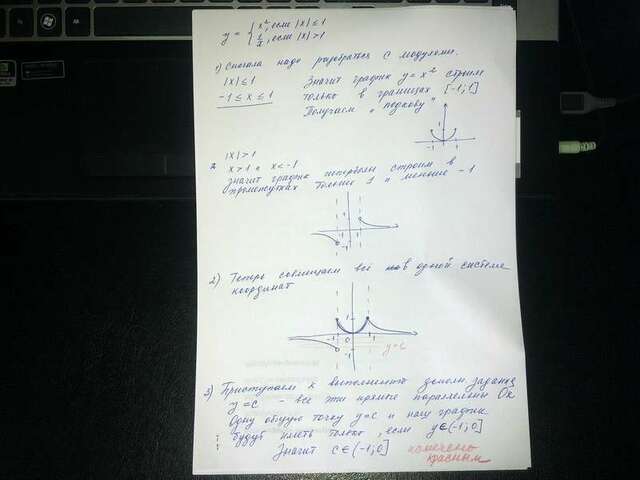 y = { x², если |x| ≤ 1
1/x, если |x| > 1
1) Сначала надо разобраться с модулем.
|x| ≤ 1 Значит график y = x² строим
-1 ≤ x ≤ 1 только в границах [-1; 1]
Получаем „подкову"
1
-1 1
|x| > 1
x > 1 и x < -1
Значит график гиперболы строим в
промежутках больше 1 и меньше -1
-1 1
1
-1
2) Теперь совмещаем всё в одной системе
координат
1
-1 0 1
-1
y=c
3) Приступаем к выполнению задания
y = c - все эти прямые параллельны Ox
Одну общую точку y=c и наш график
будут иметь только, если y∈(-1; 0]
Значит c∈(-1; 0]
помечено
красным